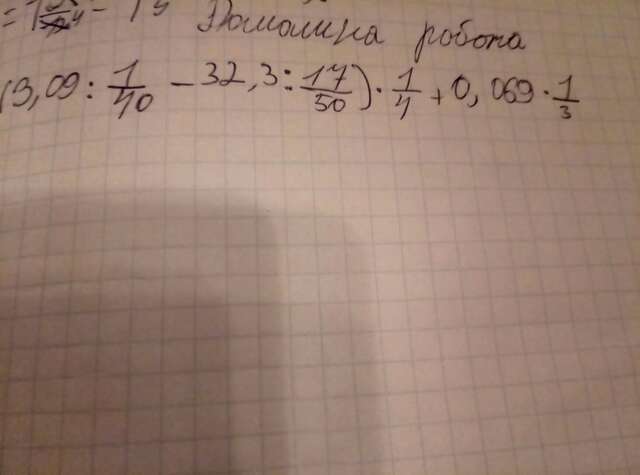 Домашна робота
(3,09 : 1/40 - 32,3 : 17/50) · 1/4 + 0,069 · 1/3